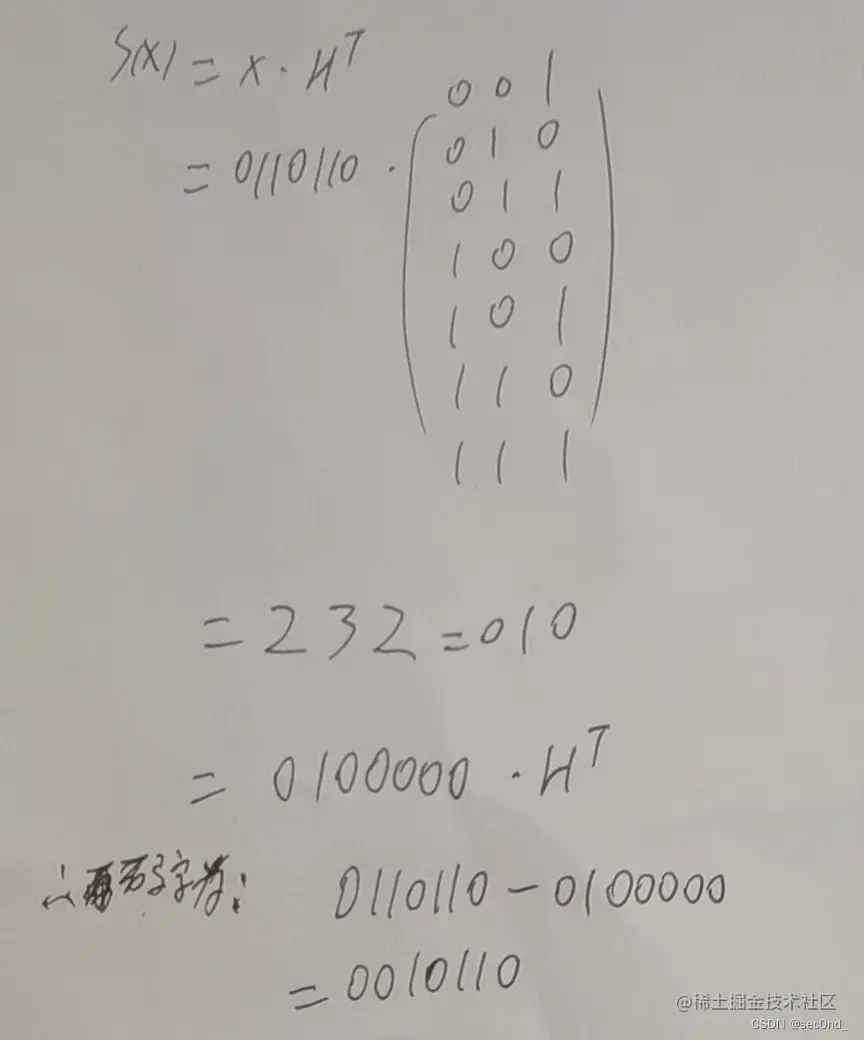 S(x) = x · H^T
0 0 1
= 0110110 · 0 1 0
0 1 1
1 0 0
1 0 1
1 1 0
1 1 1
= 232 = 010
= 0100000 · H^T
∴ 码字为: 0110110 - 0100000
= 0010110
@稀土掘金技术社区
CSDN @sec0nd_